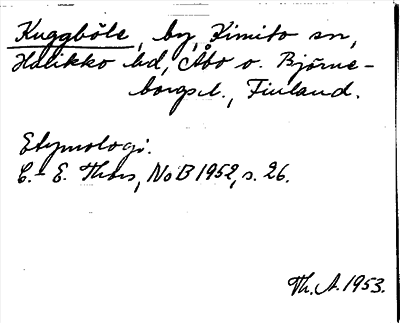 Kuggböle, by, Kimito sn,
Halikko hd, Åbo o. Björne-
borgs l., Finland.
Etymologi.
C.-E. Thors, NoB 1952, s. 26.
Th. A. 1953.